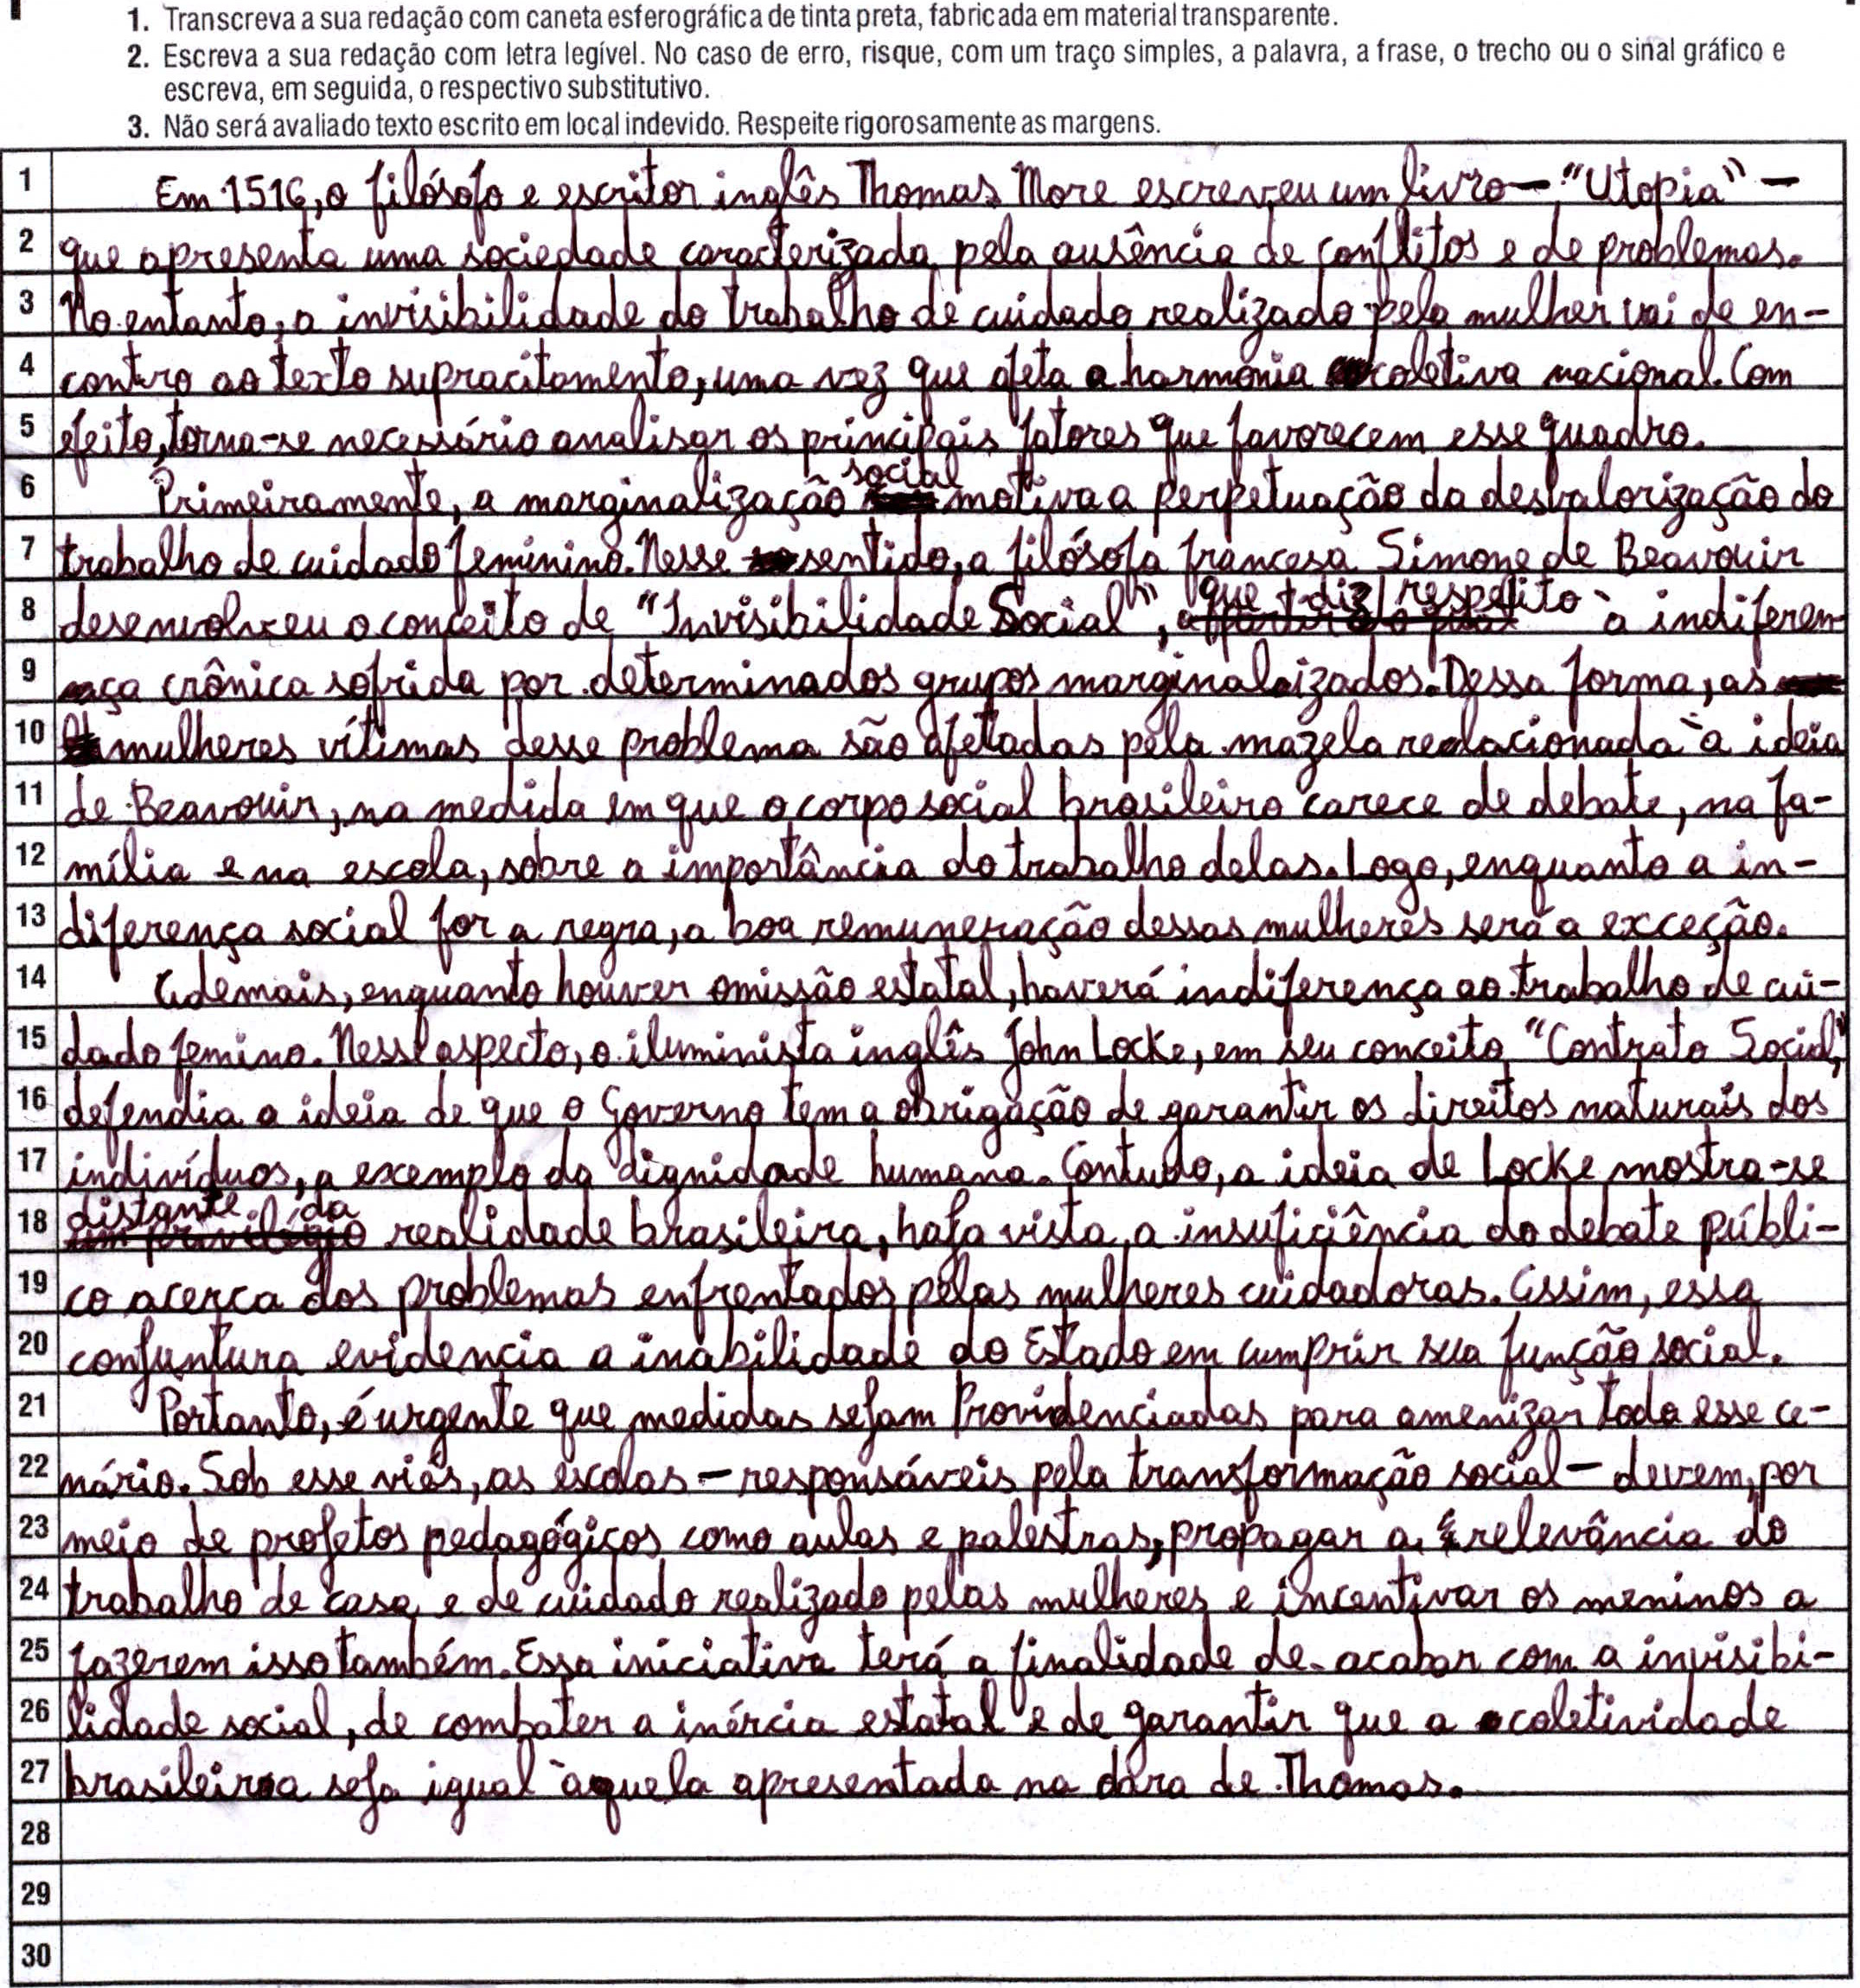 1. Transcreva a sua redação com caneta esferográfica de tinta preta, fabricada em material transparente.
2. Escreva a sua redação com letra legível. No caso de erro, risque, com um traço simples, a palavra, a frase, o trecho ou o sinal gráfico e
escreva, em seguida, o respectivo substitutivo.
3. Não será avaliado texto escrito em local indevido. Respeite rigorosamente as margens.
1 Em 1516, o filósofo e escritor inglês Thomas More escreveu um livro – "Utopia" –
2 que apresenta uma sociedade caracterizada pela ausência de conflitos e de problemas.
3 No entanto, a invisibilidade do trabalho de cuidado realizado pela mulher vai de en-
4 contro ao texto supracitamento, uma vez que afeta a harmonia coletiva nacional. Com
5 efeito, torna-se necessário analisar os principais fatores que favorecem esse quadro.
6 Primeiramente, a marginalização social motiva a perpetuação da desvalorização do
7 trabalho de cuidado feminino. Nesse sentido, a filósofa francesa Simone de Beavouir
8 desenvolveu o conceito de "Invisibilidade Social", que diz respeito à indiferen
9 ça crônica sofrida por determinados grupos marginalizados. Dessa forma, as
10 mulheres vítimas desse problema são afetadas pela mazela relacionada à ideia
11 de Beavouir, na medida em que o corpo social brasileiro carece de debate, na fa-
12 mília e na escola, sobre a importância do trabalho delas. Logo, enquanto a in-
13 diferença social for a regra, a boa remuneração dessas mulheres será a exceção.
14 Ademais, enquanto houver omissão estatal, haverá indiferença ao trabalho de cui-
15 dado femino. Nesse aspecto, o iluminista inglês John Locke, em seu conceito "Contrato Social,"
16 defendia a ideia de que o Governo tem a obrigação de garantir os direitos naturais dos
17 indivíduos, a exemplo da dignidade humana. Contudo, a ideia de Locke mostra-se
18 distante da realidade brasileira, haja vista a insuficiência do debate públi-
19 co acerca dos problemas enfrentados pelas mulheres cuidadoras. Assim, essa
20 conjuntura evidencia a inabilidade do Estado em cumprir sua função social.
21 Portanto, é urgente que medidas sejam Providenciadas para amenizar todo esse ce-
22 nário. Sob esse viés, as escolas – responsáveis pela transformação social – devem, por
23 meio de projetos pedagógicos como aulas e palestras, propagar a relevância do
24 trabalho de casa e de cuidado realizado pelas mulheres e incentivar os meninos a
25 fazerem isso também. Essa iniciativa terá a finalidade de acabar com a invisibi-
26 lidade social, de combater a inércia estatal e de garantir que a coletividade
27 brasileira seja igual àquela apresentada na obra de Thomas.
28
29
30